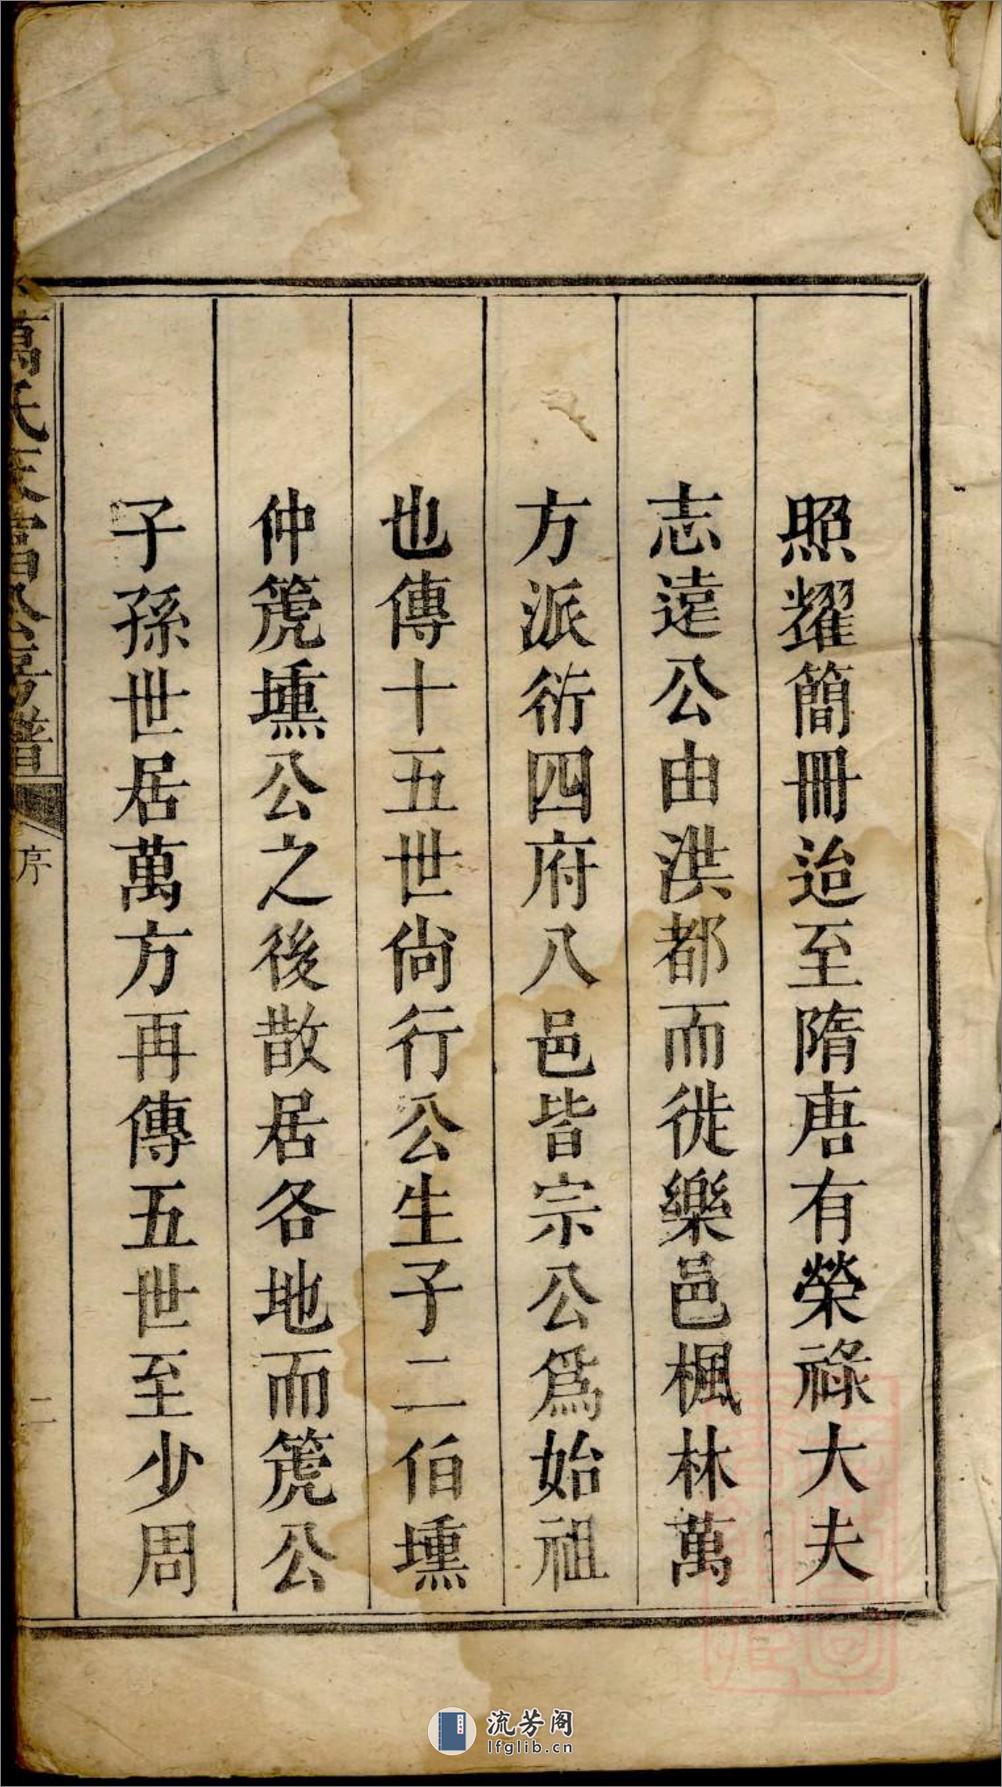 照耀簡冊迨至隋唐有榮祿大夫
志遠公由洪都而徙樂邑楓林萬
方派衍四府八邑皆宗公爲始祖
也傳十五世尙行公生子二伯壎
仲箎壎公之後散居各地而箎公
子孫世居萬方再傳五世至少周
萬氏 富公房譜
序
二
流芳阁
lfglib.cn